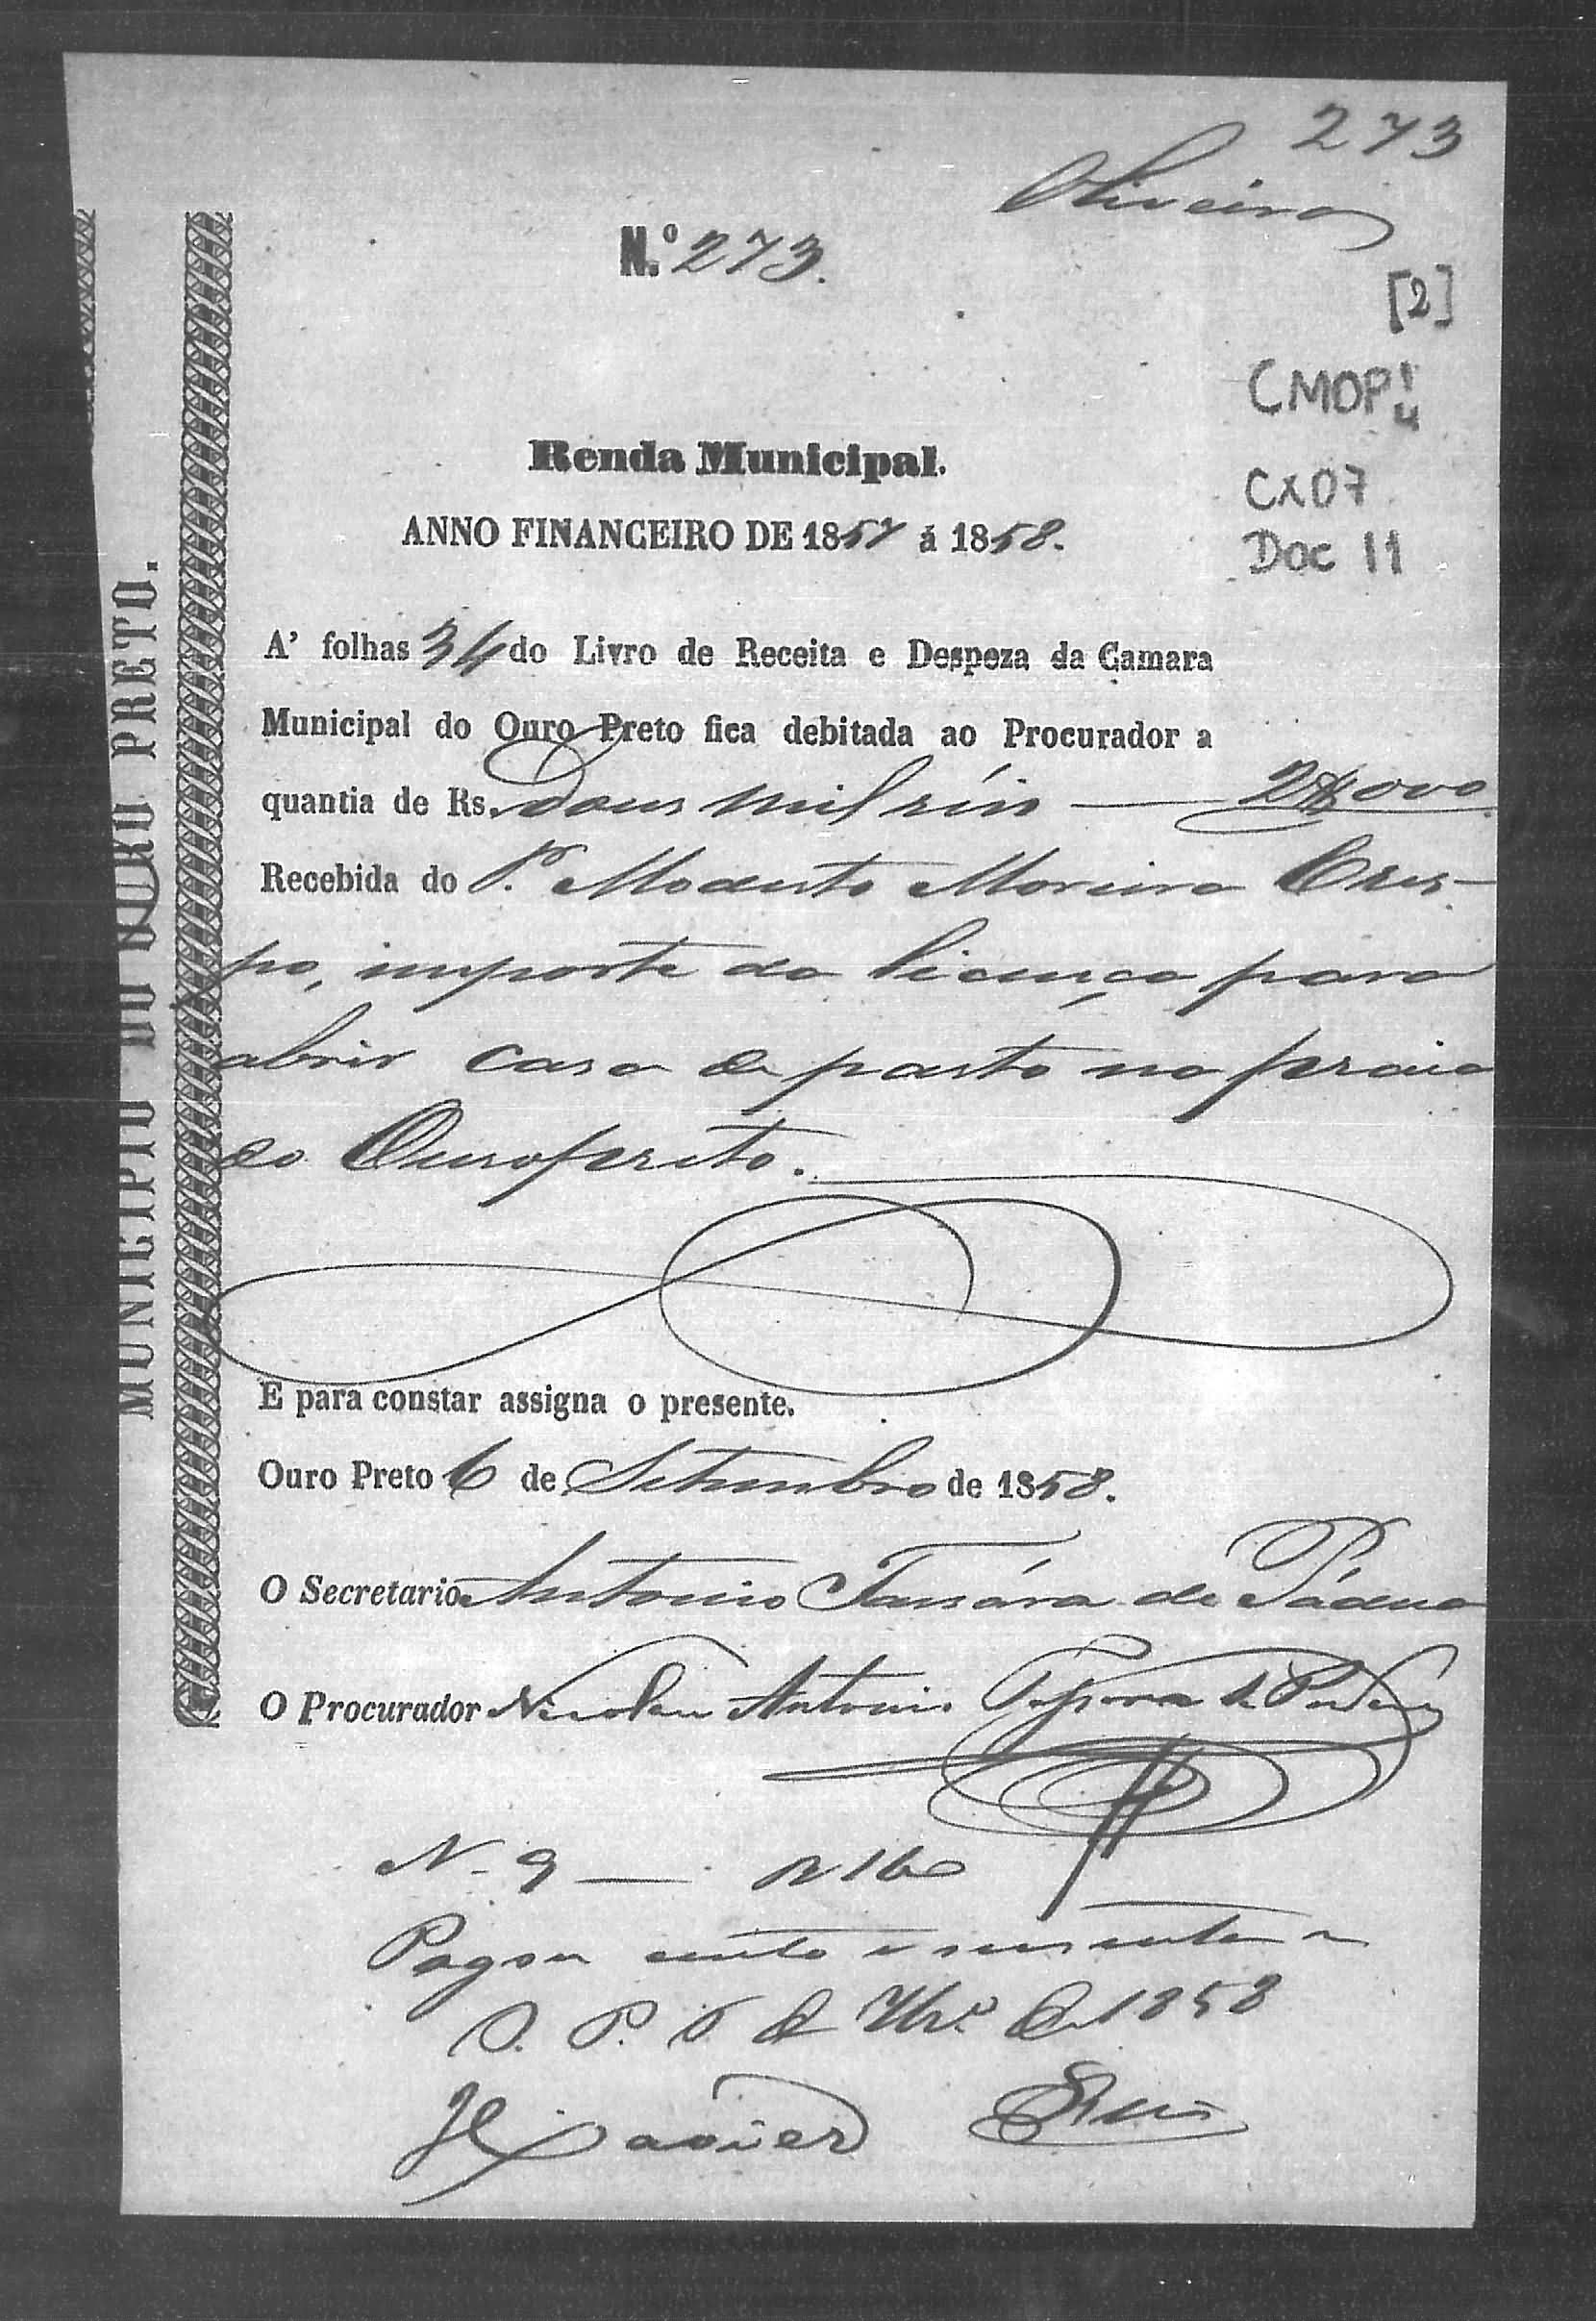 273
Oliveira
N.º 273.
[2]
CMOP
Cx07
Doc 11
Renda Municipal.
ANNO FINANCEIRO DE 1857 á 1858.
A' folhas 34 do Livro de Receita e Despeza da Camara
Municipal do Ouro Preto fica debitada ao Procurador a
quantia de Rs. Dous mil réis — 2$000
Recebida do P.e Modesto Moreira Cres-
po, importe da licença para
abrir casa de pasto na praia
do Ouropreto.
E para constar assigna o presente.
Ouro Preto 6 de Setembro de 1858.
O Secretario Antonio Tassára de Pádua
O Procurador Nicolau Antonio Tassara de Padua
N. 9 — 160
Pagou cento e sessenta rs
O. P. 6 de 7br.o de 1858
Xavier
MUNICIPIO DO OURO PRETO.